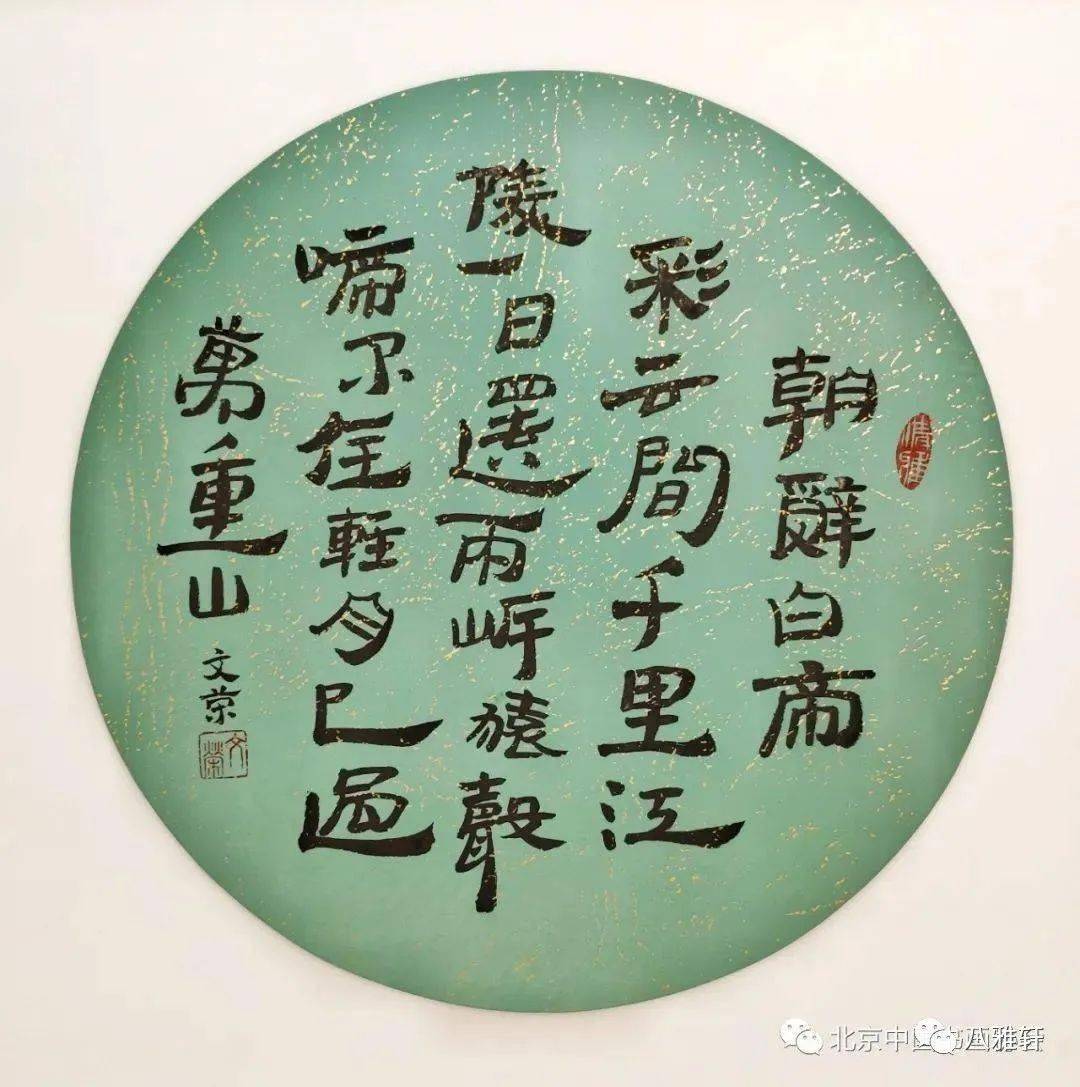 朝辭白帝
彩云間千里江
陵一日還兩岸猿聲
啼不住輕舟已過
萬重山
文荣
文榮
北京中
八雅轩